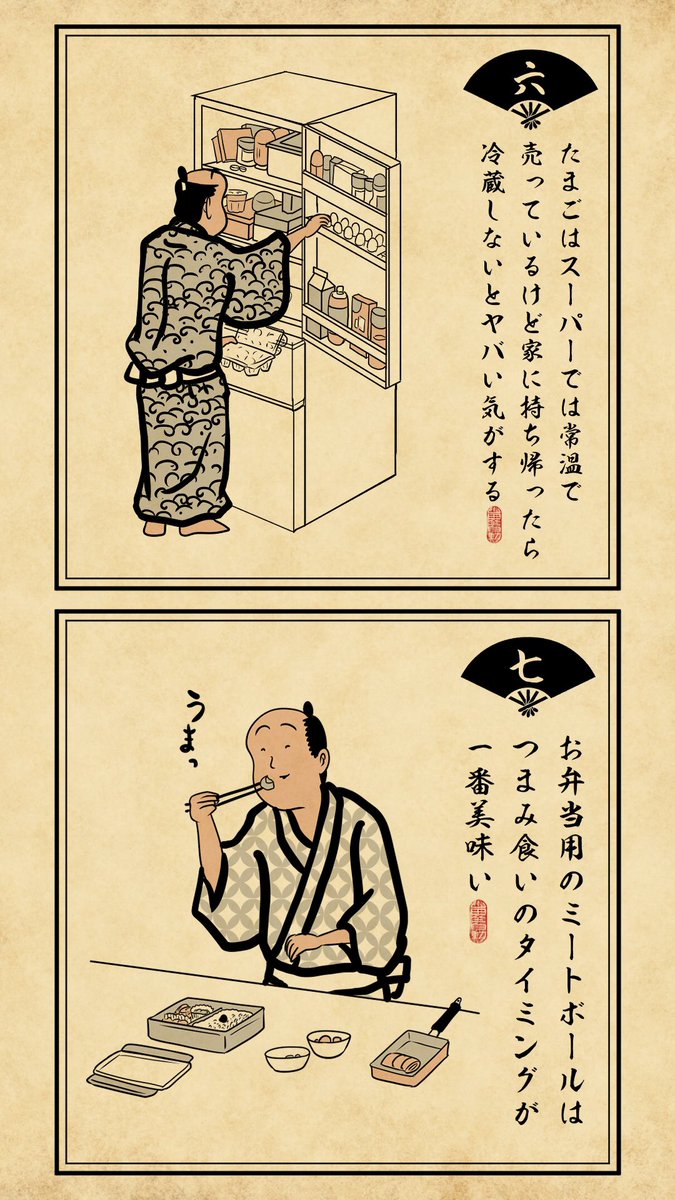 六
たまごはスーパーでは常温で
売っているけど家に持ち帰ったら
冷蔵しないとヤバい気がする
七
お弁当用のミートボールは
つまみ食いのタイミングが
一番美味い
うまっ